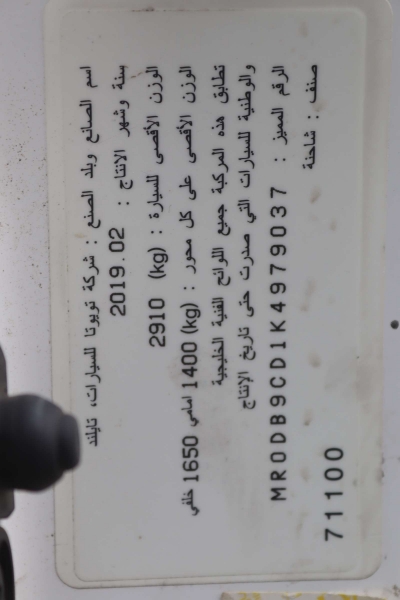 اسم الصانع وبلد الصنع : شركة تويوتا للسيارات، تايلند
سنة وشهر الانتاج : 2019.02
الوزن الأقصى للسيارة : (kg) 2910
الوزن الأقصى على كل محور : (kg) 1400 امامي 1650 خلفي
تطابق هذه المركبة جميع اللوائح الفنية الخليجية
والوطنية للسيارات التي صدرت حتى تاريخ الإنتاج
الرقم المميز : MR0DB9CD1K4979037
صنف : شاحنة
71100